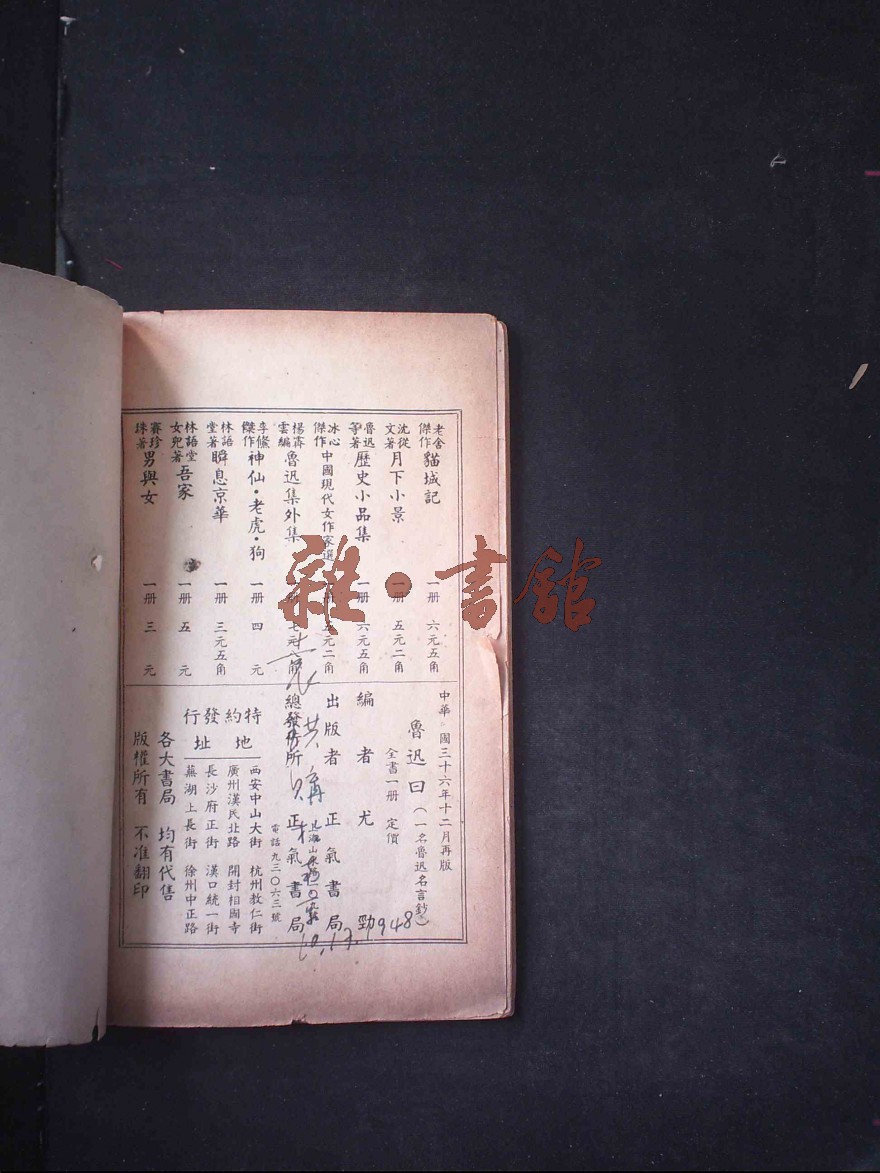 老舍傑作 貓城記 一册 六元五角
沈從文著 月下小景 一册 五元二角
魯迅等著 歷史小品集 一册 六元五角
冰心傑作 中國現代女作家選 一册 五元二角
楊霽雲編 魯迅集外集 一册
傑作 神仙·老虎·狗 一册 四 元
林語堂著 瞬息京華 一册 三元五角
林語堂女兒著 吾家 一册 五 元
賽珍珠著 男與女 一册 三 元
中華 國三十六年十二月再版
魯迅曰(一名魯迅名言鈔)
全書一册 定價
編者 尤勁
出版者 正氣書局
上海山東路
總發行所 正氣書局
電話九三〇六三號
特約發行
地址
西安中山大街 杭州教仁街
廣州漢民北路 開封相國寺
長沙府正街 漢口統一街
蕪湖上長街 徐州中正路
各大書局 均有代售
版權所有 不准翻印
1948
10.17.
雜·書館